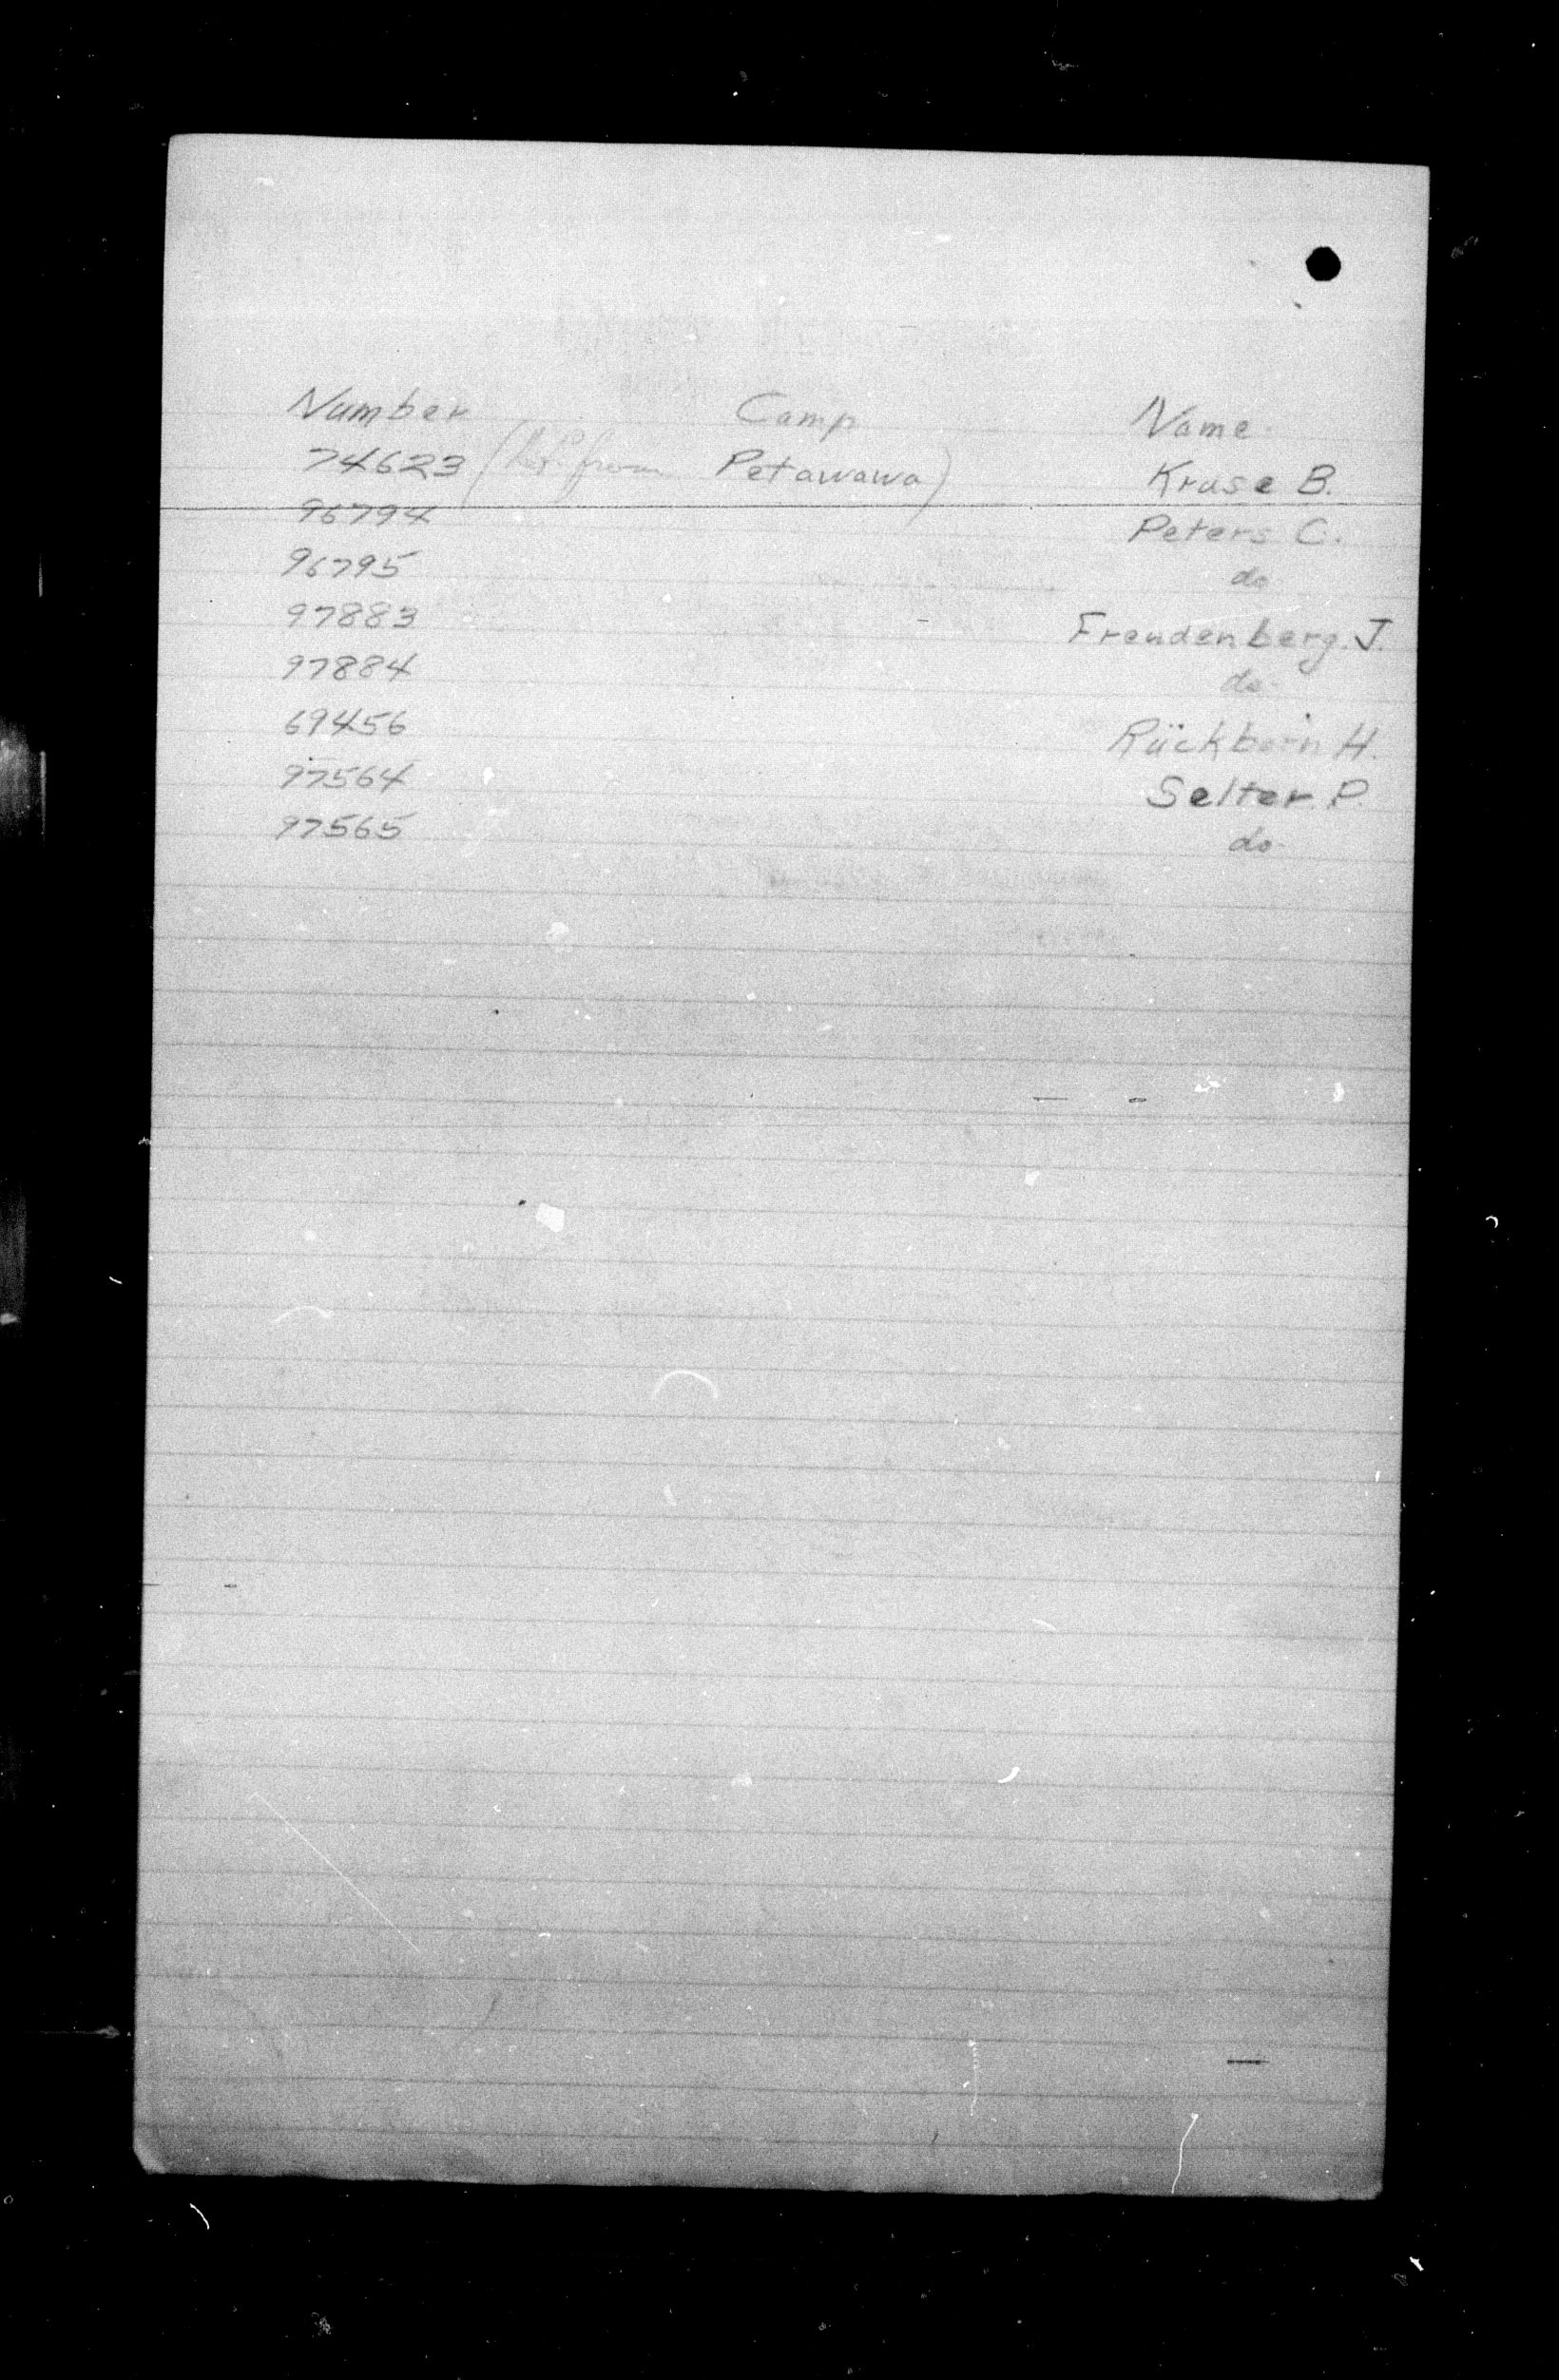 Number Camp Name
74623 ( from Petawawa) Kruse B.
96794 Peters C.
96795 do
97883 Freudenberg. J.
97884 do-
69456 Rückborn H.
97564 Selter. P.
97565 do-